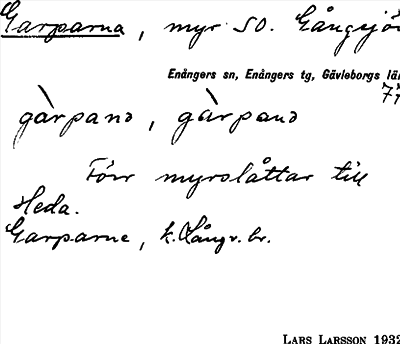 Garparna, myr SO. Gångsjö
Enångers sn, Enångers tg, Gävleborgs lä
77
gàrpanə, gàrpanə
Förr myrslåttar till
Heda.
Garparne, k. Långv. br.
LARS LARSSON 1932